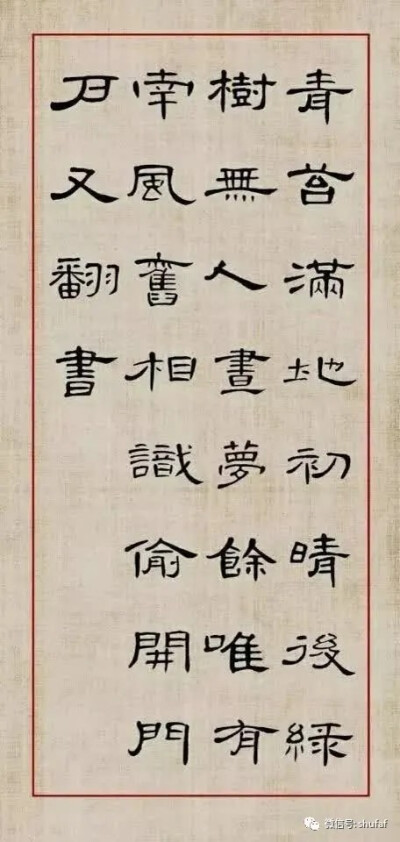 青苔滿地初晴後綠
樹無人晝夢餘唯有
南風舊相識偷開門
戶又翻書
微信号: shufaf